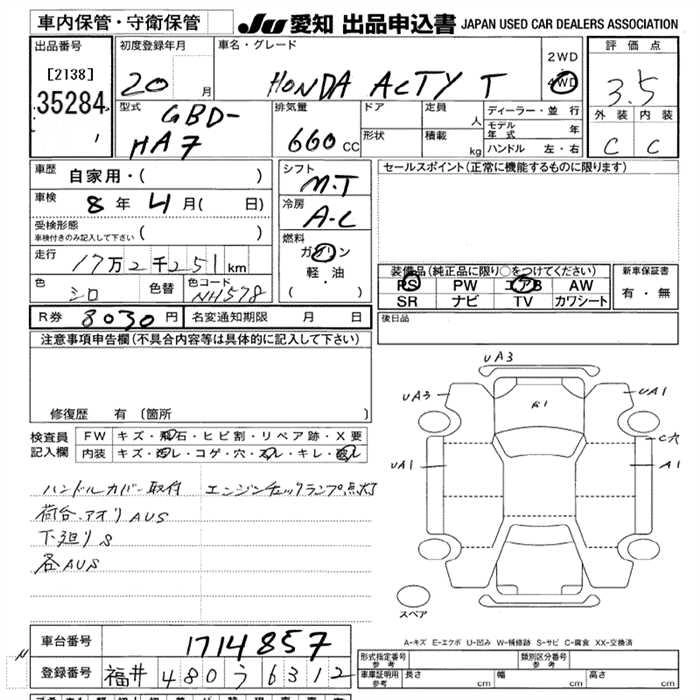 車内保管・守衛保管
JU 愛知 出品申込書 JAPAN USED CAR DEALERS ASSOCIATION
出品番号
[2138]
35284
1
初度登録年月
20 月
車名・グレード
HONDA ACTY T
2WD
4WD
評価点
3.5
外装 内装
C C
型式
GBD-
HA7
排気量
660 CC
ドア
形状
定員 人
積載 kg
ディーラー・並行
モデル年式 年
ハンドル 左・右
車歴 自家用・( )
車検 8年 4月( 日)
受検形態
車検付きのみ記入して下さい ( )
走行 17万2千251km
色 シロ 色替 色コード NH578
シフト
M.T
冷房
A-C
燃料
ガソリン
軽・油
( )
セールスポイント(正常に機能するものに限ります)
装備品(純正品に限り○をつけてください)
PS PW エアB AW
SR ナビ TV カワシート
新車保証書
有・無
R券 8030円 名変通知期限 月 日
後日品
注意事項申告欄(不具合内容等は具体的に記入して下さい)
修復歴 有(箇所 )
検査員記入欄
FW キズ・飛石・ヒビ割・リペア跡・X要
内装 キズ・汚レ・コゲ・穴・スレ・キレ・破レ
ハンドルカバー取付 エンジンチェックランプ点灯
荷台、アオリAUS
下廻りS
各AUS
UA3
UA3
A1
UA1
C穴
UA1
A1
スペア
A-キズ E-エクボ U-凹み W-補修跡 S-サビ C-腐食 XX-交換済
車台番号 1714857
登録番号 福井 480 う 6312
形式指定番号 参考
類別区分番号 参考
車庫証明用 参考 長さ cm 幅 cm 高さ cm